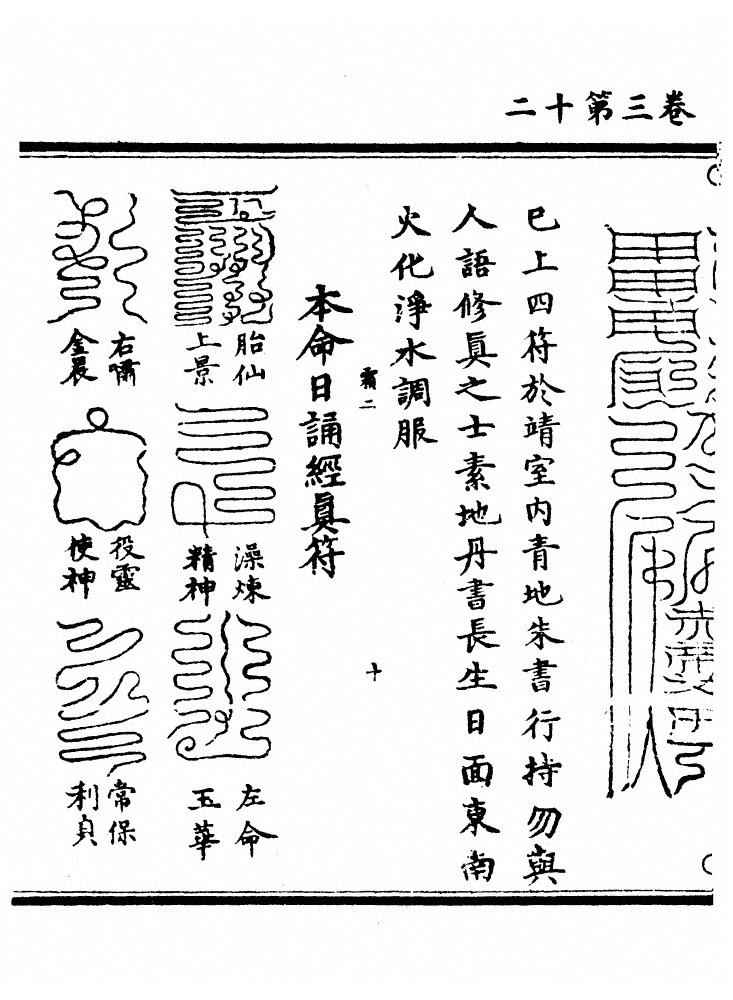 卷三第十二
巳上四符於靖室內青地朱書行持勿與
人語修眞之士素地丹書長生日面東南
火化淨水調服
霜二
十
本命日誦經眞符
胎仙
上景
澡煉
精神
左命
玉華
右嘯
金晨
役靈
使神
常保
利貞